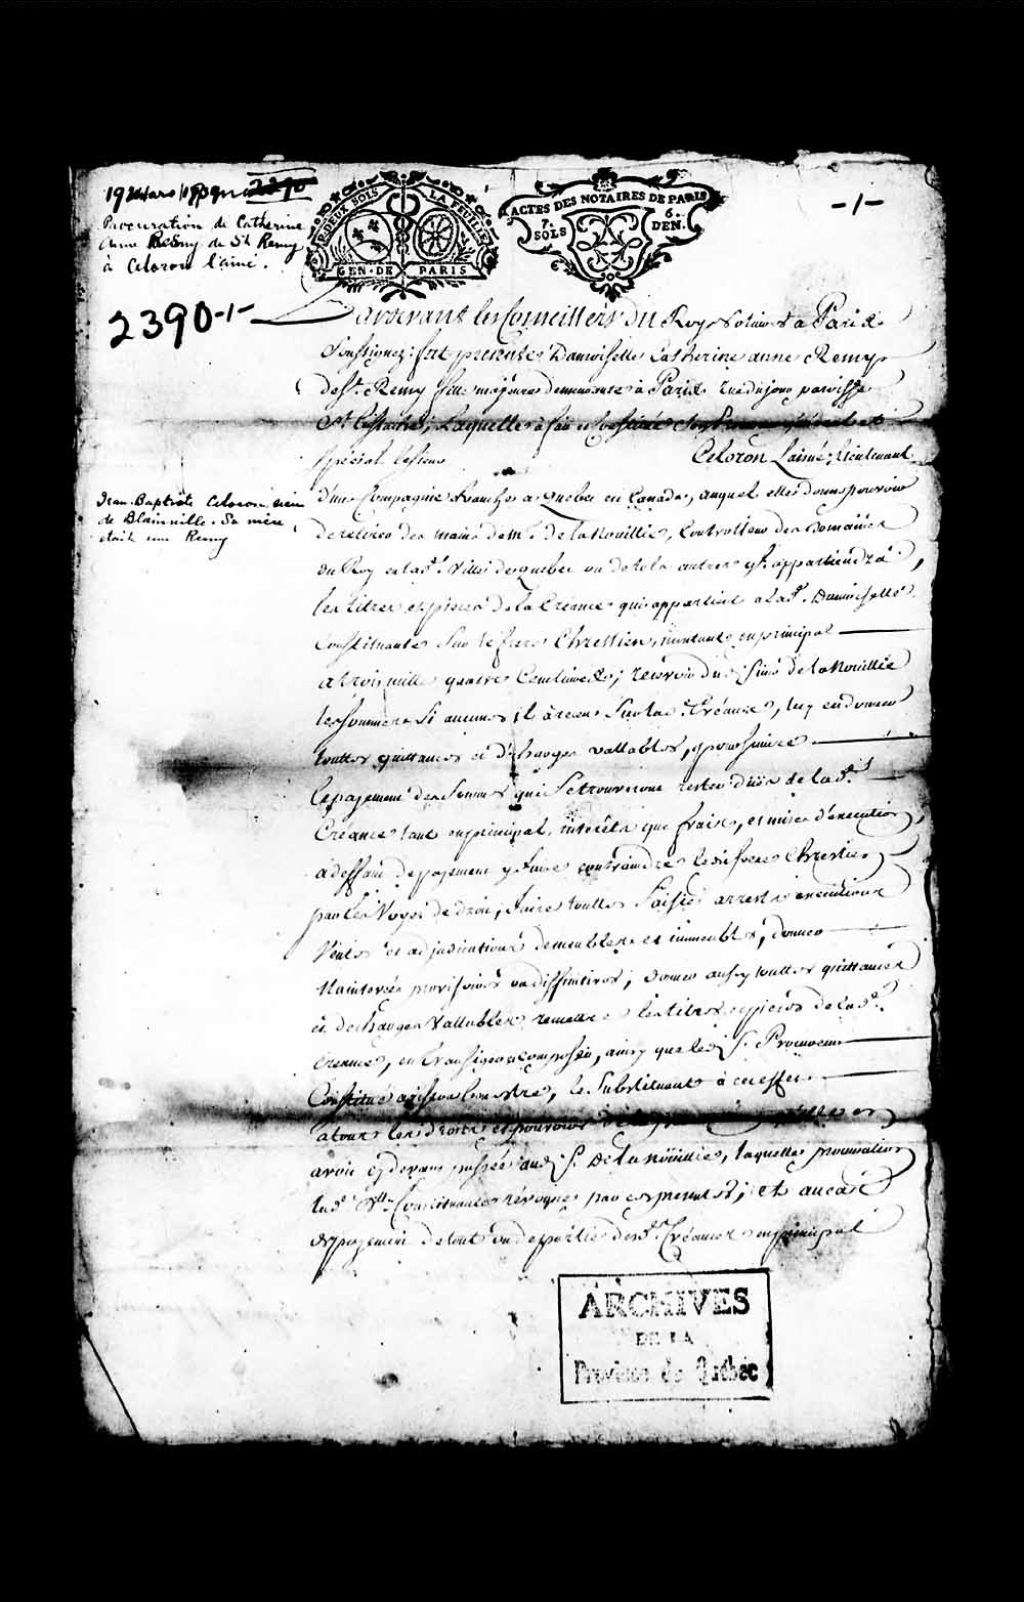 19 Mars
Procuration de Catherine
Anne Rémy de St Remy
à Celoron l'ainé.
2390-1-
DEUX SOLS LA FEUILLE
GEN. DE PARIS
ACTES DES NOTAIRES DE PARIS
7. SOLS 6. DEN.
-1-
Pardevant les Conseillers du Roy Notaires a Paris
Soussignez fut presente Damoiselle Catherine anne Remy
de St. Remy fille majeure demeurante à Paris rue du jour paroisse
St. Eustache, Laquelle a fait et constitué son Procureur general et
special le sieur Celoron Laisné, lieutenant
Jean-Baptiste Celoron, sieur
de Blainville. Sa mère
était une Remy
d'une Compagnie franche a Quebec en Canada, auquel elle donne pouvoir
de retirer des mains de Mr. de la Nouillie, Controlleur des Domaines
du Roy en lad. Ville de Quebec ou de tels autres qu'il appartiendra,
les titres et pieces de la Creance qui appartient a lad. Damoiselle
Constituante sur le frere Chrestien, montante en principal
a trois mille quatre Cent livres; recevoir dud. Sieur de la Nouillie
les sommes si aucunes il a recu sur lad. Creance, luy en donner
touttes quittances et décharges vallables, poursuivre
le payement des sommes qui se trouveront rester dues de lad.
Creance tant en principal, interets que frais, et mises d'execution,
a deffaut de payement y faire contraindre led. frere Chrestien
par les Voyes de droit, faire touttes Saisies arrests executions
Ventes et adjudications de meubles et immeubles, donner
Mainlevées provisoires ou diffinitives; donner aussy touttes quittances
et decharges Vallables, remettre les titres et pieces de lad.
creance, en transiger composer, ainsy que led. S. Procureur
Constitué avisera bon estre, le Substituant à cet effet
a tous les droits et pouvoirs
avoir cy devant passée aud. S. De la Nouillie, laquelle procuration
lad. Dlle. Constituante révoque par ces presentes; Et au cas
de payement de tout ou de partie desd. Creances en principal
ARCHIVES
DE LA
Province de Québec